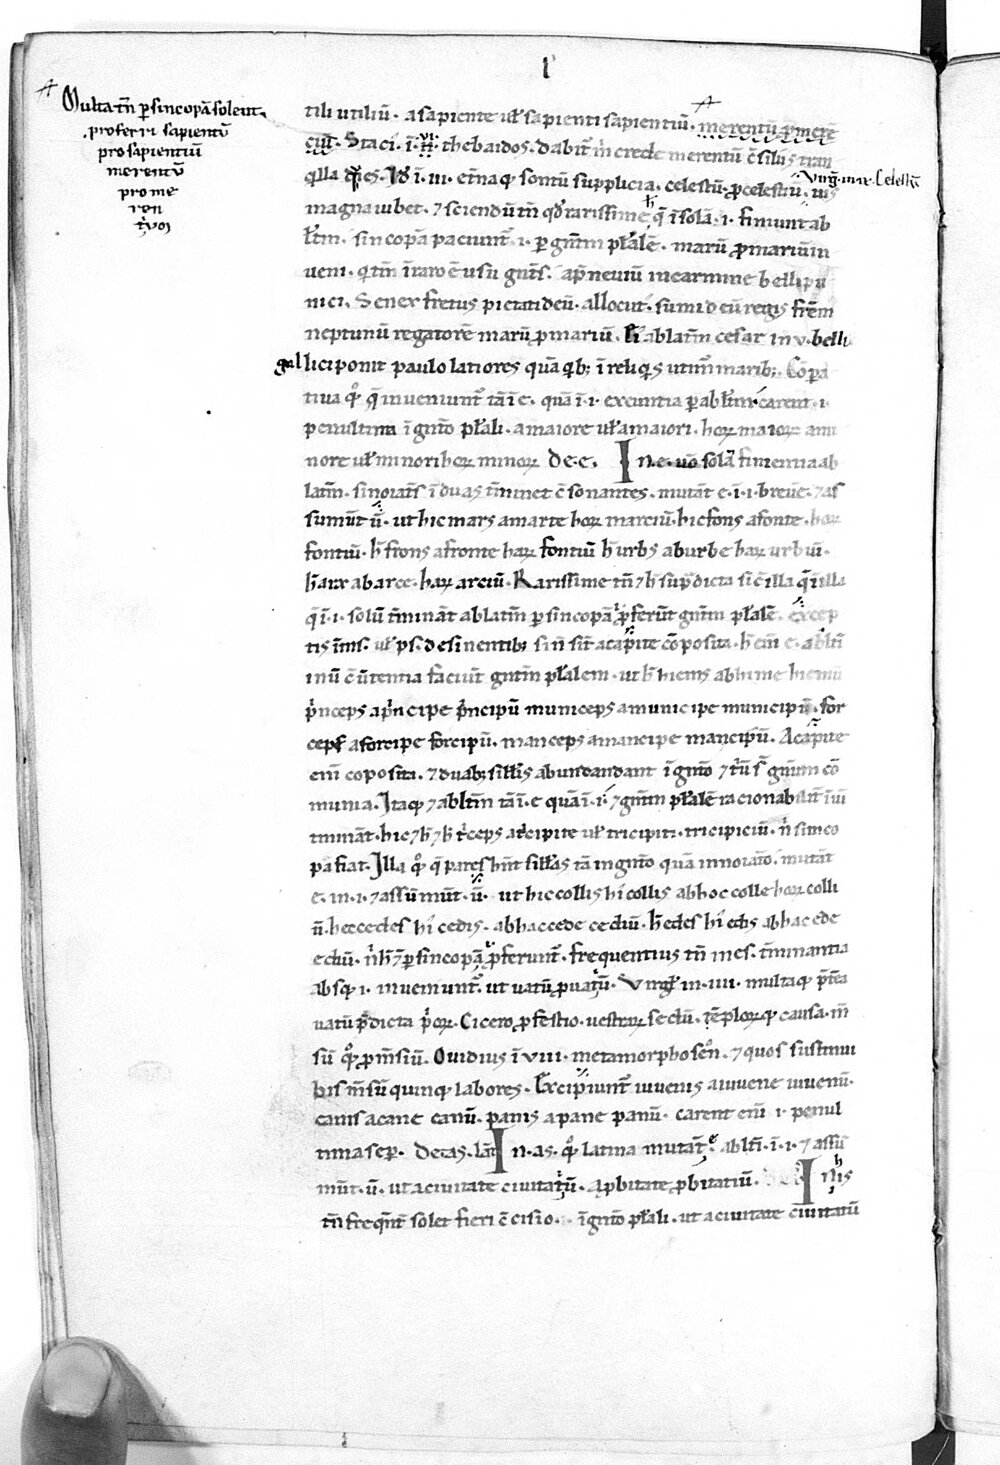 I
Multa tñ ꝑ sincopã solent
proferri sapientũ
pro sapientium
merentũ
pro me
ren
tĩuȝ
tili utiliũ. a sapiente uꝉ sapienti sapientiũ. merentũ ꝓ merẽ
ciũ. Staci. ĩ. vi. thebaidos. dabit̃ m̃ crede merentũ c̃silus tran
qlla q̃es. Id ĩ. iii. etnaqꝫ sontũ supplicia. celestũ. ꝓ celestiũ. uis
Virg̃. in. ix. Celestũ
magna iubet. ⁊ sciendũ tñ qđ rarissime q̃ ĩ solã. i. finiunt ab
ꝉtm. sincopã paciunt̃. i. ꝑ gñtm pꝉalẽ. marũ ꝓ marium in
ueni. q tm̃ ĩ raro ẽ usũ gñts. ap̃ neuiũ in carmine belli pu
nici. Senex fretus pietati deũ. allocut̃. sumi deũ regis frẽm
neptunũ regatorẽ marũ ꝓ mariũ. ablatm̃ cesar in v. belli
gallici ponit paulo latiores quã qbꝫ ĩ reliqis utim̃ maribꝫ. Cõpa
tiua qͦ q̃ inueniunt̃ tã ĩ e. quã ĩ. i. exeuntia ꝑ abꝉtm̃ carent. i.
penultima ĩ gñto pꝉali. a maiore uꝉ a maiori. hoꝝ maioꝝ ami
nore uꝉ minori hoꝝ minoꝝ De. e. In. e. uõ solã finientia ab
latm̃. si noiats̃ ĩ duas t̃minet c̃sonantes. mutãt e. ĩ. i. breuẽ. ⁊ as
sumũt ũ. ut hic mars a marte hoꝝ marciũ. hic fons a fonte. hoꝝ
fontiũ. h̃ frons a fronte haꝝ fontiũ h̃ urbs ab urbe haꝝ urbiũ.
h̃ arx ab arce. haꝝ arciũ. Rarissime tñ ⁊ h̃ sup̃dicta sic̃ illa q̃ ĩ illa
q̃ ĩ. i. solũ t̃minãt ablatm̃ ꝑ sincopã ꝓferũt gñtm pꝉalẽ. excep
tis ĩ ms. uꝉ ps. desinentibꝫ si ñ sĩt a capite cõposita. h̃ em̃ e. abꝉti
in ũ c̃uertentia faciũt gñtm pꝉalem. ut h̃ hiems ab hieme hiemũ
p̃nceps a p̃ncipe p̃ncipũ municeps a municipe municipũ. for
ceps a forcipe forcipũ. manceps a mancipe mancipũ. A capite
em̃ coposita. ⁊ duabꝫ sillis abundandant ĩ gñto ⁊ t̃ũ s̃ gñum cõ
munia. Itaqꝫ ⁊ abꝉtm̃ tã ĩ. e quã ĩ. i. ⁊ gñtm pꝉalẽ racionabilit̃ ĩ iũ
t̃minãt. hic ⁊ h̃ ⁊ h̃ t̃ceps a t̃cipite uꝉ tricipiti. tricipiciũ. ñ sinco
pa fiat. Illa qͦ q̃ pares hñt sillas tã in gñto quã in noiatõ. mutãt
e. in. i. ⁊ assũmũt. ũ. ut hic collis hĩ collis ab hoc colle hoꝝ colli
ũ. hec cedes hĩ cedis. ab hac cede cediũ. h̃ edes hĩ edis ab hac ede
ediũ. ñ h̃ ⁊ ꝑ sincopã ꝓferunt̃. frequentius tñ in es. t̃minantia
absqꝫ i. inueniunt̃. ut uatũ ꝓ uatiũ. Virgꝉ in. iiii. multaqꝫ p̃tea
uatũ p̃dicta p̃oꝝ. Cicero ꝓ festio. uestraꝝ sediũ. tẽploꝝqꝫ causa. m̃
sũ qͦ ꝓ m̃siũ. Ouidius ĩ viii. metamorphoseõ. ⁊ quos sustinui
bis m̃sũ quinqꝫ labores. Excipiunt̃ iuuenis a iuuene iuuenũ.
canis a cane canũ. panis a pane panũ. carent em̃ i. penul
tima sep̃. De as. lat̃ In. as. qͦ latina mutãt. e abꝉti. ĩ. i. ⁊ assũ
mũt. ũ. ut a ciuitate ciuitatiũ. a ꝓbitate ꝓbitatiũ. In his
tñ freqnt̃ solet fieri c̃cisio. ĩ gñto pꝉali. ut a ciuitate ciuitatũ